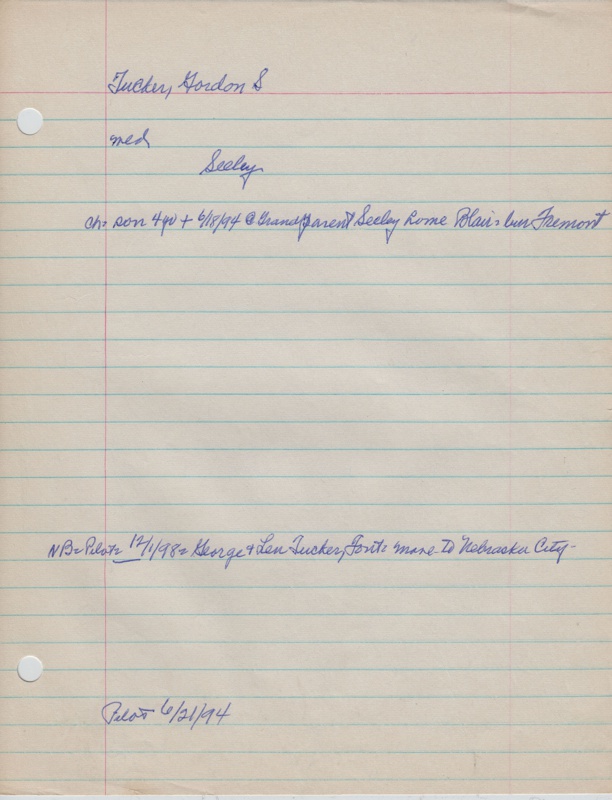 Tucker, Gordon S
med
Seeley
ch= son 4yo + 6/18/94 @ Grandparent Seeley home Blair= bur Fremont
NB= Pilot= 12/1/98= George & Len Tucker, Font= move to Nebraska City-
Pilot 6/21/94